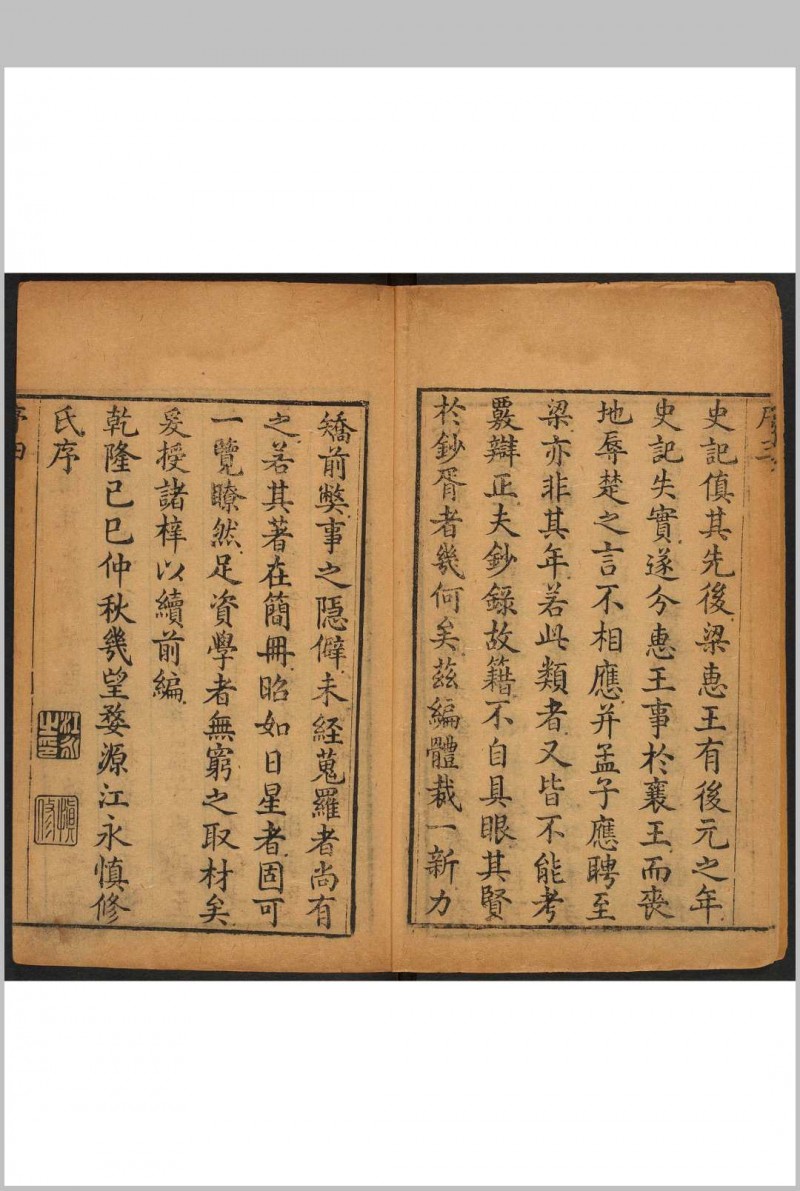 序三
史記傎其先後梁惠王有後元之年
史記失實遂分惠王事於襄王而喪
地辱楚之言不相應并孟子應聘至
梁亦非其年若此類者又皆不能考
覈辯正夫鈔錄故籍不自具眼其賢
於鈔胥者幾何矣茲編體裁一新力
矯前弊事之隱僻未經蒐羅者尚有
之若其著在簡冊昭如日星者固可
一覽瞭然足資學者無窮之取材矣
爰授諸梓以續前編
乾隆己巳仲秋幾望婺源江永慎修
氏序
江永之印
慎修
序四